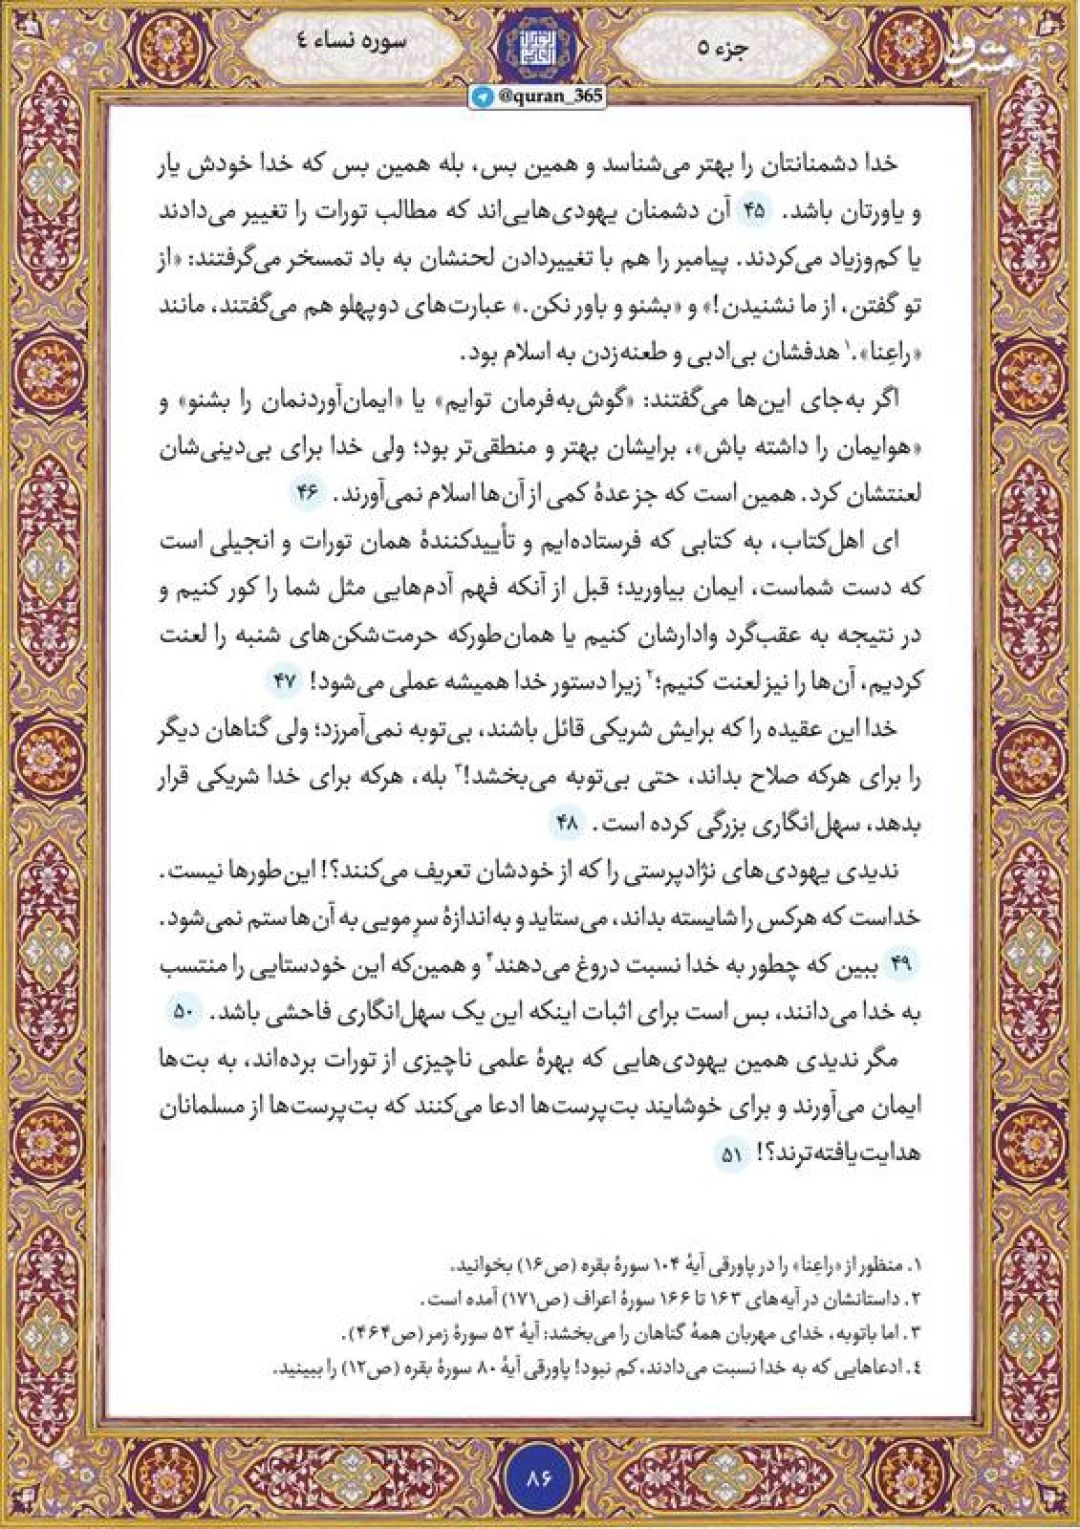 جزء ۵
سوره نساء ٤
مشرق
mashreghnews.ir
@quran_365
خدا دشمنانتان را بهتر می‌شناسد و همین بس، بله همین بس که خدا خودش یار
و یاورتان باشد. ۴۵ آن دشمنان یهودی‌هایی‌اند که مطالب تورات را تغییر می‌دادند
یا کم‌وزیاد می‌کردند. پیامبر را هم با تغییردادن لحنشان به باد تمسخر می‌گرفتند: «از
تو گفتن، از ما نشنیدن!» و «بشنو و باور نکن.» عبارت‌های دوپهلو هم می‌گفتند، مانند
«راعِنا».۱ هدفشان بی‌ادبی و طعنه‌زدن به اسلام بود.
اگر به‌جای این‌ها می‌گفتند: «گوش‌به‌فرمان توایم» یا «ایمان‌آوردنمان را بشنو» و
«هوایمان را داشته باش»، برایشان بهتر و منطقی‌تر بود؛ ولی خدا برای بی‌دینی‌شان
لعنتشان کرد. همین است که جز عدهٔ کمی از آن‌ها اسلام نمی‌آورند. ۴۶
ای اهل‌کتاب، به کتابی که فرستاده‌ایم و تأییدکنندهٔ همان تورات و انجیلی است
که دست شماست، ایمان بیاورید؛ قبل از آنکه فهم آدم‌هایی مثل شما را کور کنیم و
در نتیجه به عقب‌گرد وادارشان کنیم یا همان‌طورکه حرمت‌شکن‌های شنبه را لعنت
کردیم، آن‌ها را نیز لعنت کنیم؛۲ زیرا دستور خدا همیشه عملی می‌شود! ۴۷
خدا این عقیده را که برایش شریکی قائل باشند، بی‌توبه نمی‌آمرزد؛ ولی گناهان دیگر
را برای هرکه صلاح بداند، حتی بی‌توبه می‌بخشد!۳ بله، هرکه برای خدا شریکی قرار
بدهد، سهل‌انگاری بزرگی کرده است. ۴۸
ندیدی یهودی‌های نژادپرستی را که از خودشان تعریف می‌کنند؟! این‌طورها نیست.
خداست که هرکس را شایسته بداند، می‌ستاید و به‌اندازهٔ سرِ مویی به آن‌ها ستم نمی‌شود.
۴۹ ببین که چطور به خدا نسبت دروغ می‌دهند۴ و همین‌که این خودستایی را منتسب
به خدا می‌دانند، بس است برای اثبات اینکه این یک سهل‌انگاری فاحشی باشد. ۵۰
مگر ندیدی همین یهودی‌هایی که بهرهٔ علمی ناچیزی از تورات برده‌اند، به بت‌ها
ایمان می‌آورند و برای خوشایند بت‌پرست‌ها ادعا می‌کنند که بت‌پرست‌ها از مسلمانان
هدایت‌یافته‌ترند؟! ۵۱
۱. منظور از «راعِنا» را در پاورقی آیهٔ ۱۰۴ سورهٔ بقره (ص۱۶) بخوانید.
۲. داستانشان در آیه‌های ۱۶۳ تا ۱۶۶ سورهٔ اعراف (ص۱۷۱) آمده است.
۳. اما باتوبه، خدای مهربان همهٔ گناهان را می‌بخشد: آیهٔ ۵۳ سورهٔ زمر (ص۴۶۴).
٤. ادعاهایی که به خدا نسبت می‌دادند، کم نبود! پاورقی آیهٔ ۸۰ سورهٔ بقره (ص۱۲) را ببینید.
۸۶